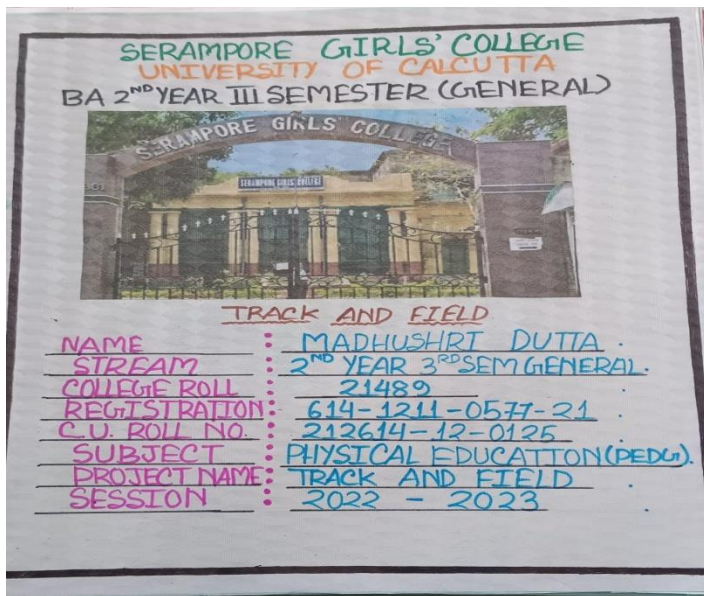 SERAMPORE GIRLS' COLLEGE
UNIVERSITY OF CALCUTTA
BA 2ND YEAR III SEMESTER (GENERAL)
SERAMPORE GIRLS' COLLEGE
SERAMPORE GIRLS COLLEGE
TRACK AND FIELD
NAME : MADHUSHRI DUTTA .
STREAM : 2ND YEAR 3RD SEM GENERAL.
COLLEGE ROLL : 21489 .
REGISTRATION : 614-1211-0577-21 .
C.U. ROLL NO. : 212614-12-0125 .
SUBJECT : PHYSICAL EDUCATION (PEDG).
PROJECT NAME : TRACK AND FIELD .
SESSION : 2022 - 2023 .